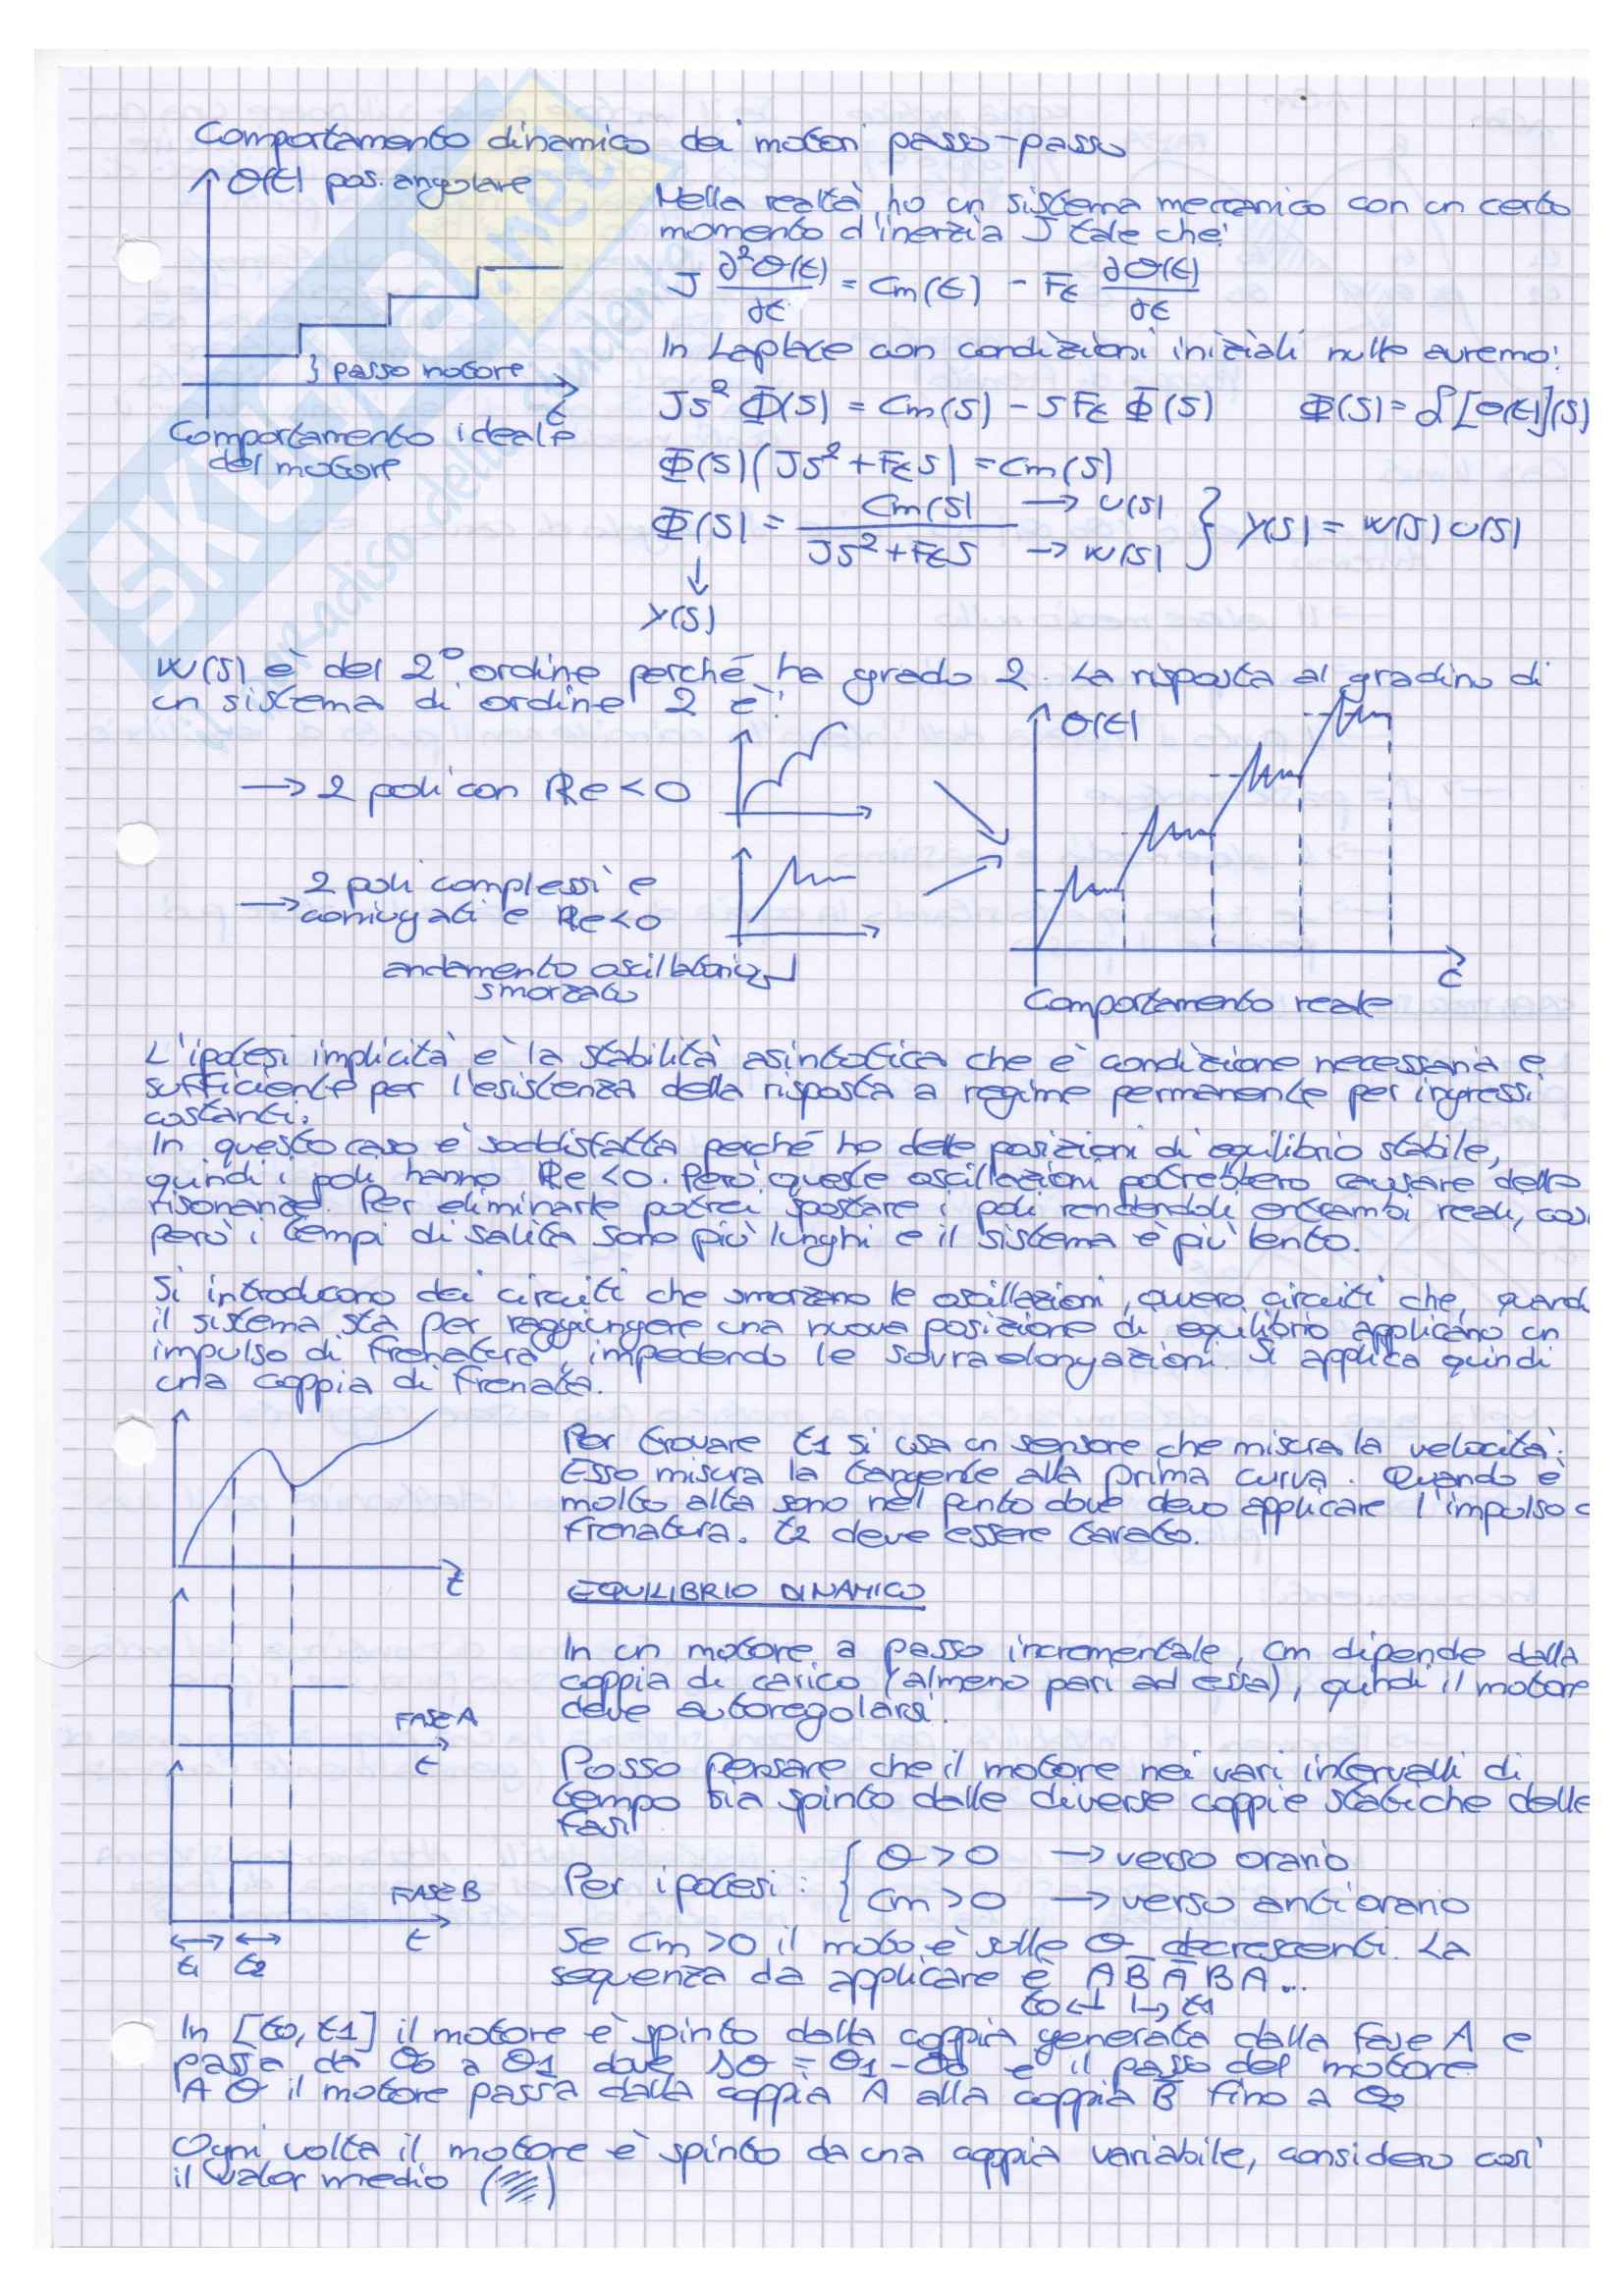 Comportamento dinamico dei motori passo-passo
θ(t) pos. angolare
} passo motore
t
Comportamento ideale
del motore
Nella realtà ho un sistema meccanico con un certo
momento d'inerzia J tale che:
J ∂²θ(t)/∂t = Cm(t) - Ft ∂θ(t)/∂t
In Laplace con condizioni iniziali nulle avremo:
Js² Φ(s) = Cm(s) - s Ft Φ(s) Φ(s) = L[θ(t)](s)
Φ(s)(Js² + Ft s) = Cm(s)
Φ(s) = Cm(s) / Js² + Ft s → U(s) → W(s) } Y(s) = W(s) U(s)
↓
Y(s)
W(s) è del 2° ordine perché ha grado 2. La risposta al gradino di
un sistema di ordine 2 è:
→ 2 poli con Re < 0
→ 2 poli complessi e
coniugati e Re < 0
andamento oscillatorio
smorzato
θ(t)
t
Comportamento reale
L'ipotesi implicita è la stabilità asintotica che è condizione necessaria e
sufficiente per l'esistenza della risposta a regime permanente per ingressi
costanti.
In questo caso è soddisfatta perché ho delle posizioni di equilibrio stabile,
quindi i poli hanno Re < 0. Però queste oscillazioni potrebbero causare delle
risonanze. Per eliminarle potrei spostare i poli rendendoli entrambi reali, così
però i tempi di salita sono più lunghi e il sistema è più lento.
Si introducono dei circuiti che smorzano le oscillazioni, ovvero circuiti che, quand
il sistema sta per raggiungere una nuova posizione di equilibrio applicano un
impulso di frenatura, impedendo le sovraelongazioni. Si applica quindi
una coppia di frenata.
t
FASE A
t
FASE B
t
t1 t2
Per trovare t1 si usa un sensore che misura la velocità.
Esso misura la tangente alla prima curva. Quando è
molto alta sono nel punto dove devo applicare l'impulso d
frenatura. t2 deve essere tarato.
EQUILIBRIO DINAMICO
In un motore a passo incrementale, Cm dipende dalla
coppia di carico (almeno pari ad essa), quindi il motore
deve autoregolarsi.
Posso pensare che il motore nei vari intervalli di
tempo sia spinto dalle diverse coppie statiche delle
fasi
Per ipotesi: { θ > 0 → verso orario
Cm > 0 → verso antiorario
Se Cm > 0 il moto è sulle θ decrescenti. La
sequenza da applicare è A B̅ A̅ B A...
t0 ↵ ↳ t1
In [t0, t1] il motore è spinto dalla coppia generata dalla fase A e
passa da θ0 a θ1 dove Δθ = θ1 - θ0 è il passo del motore
A θ il motore passa dalla coppia A alla coppia B̅ fino a θ2
Ogni volta il motore è spinto da una coppia variabile, considero così
il valor medio
SKUOLA.net
il paradiso dello studente